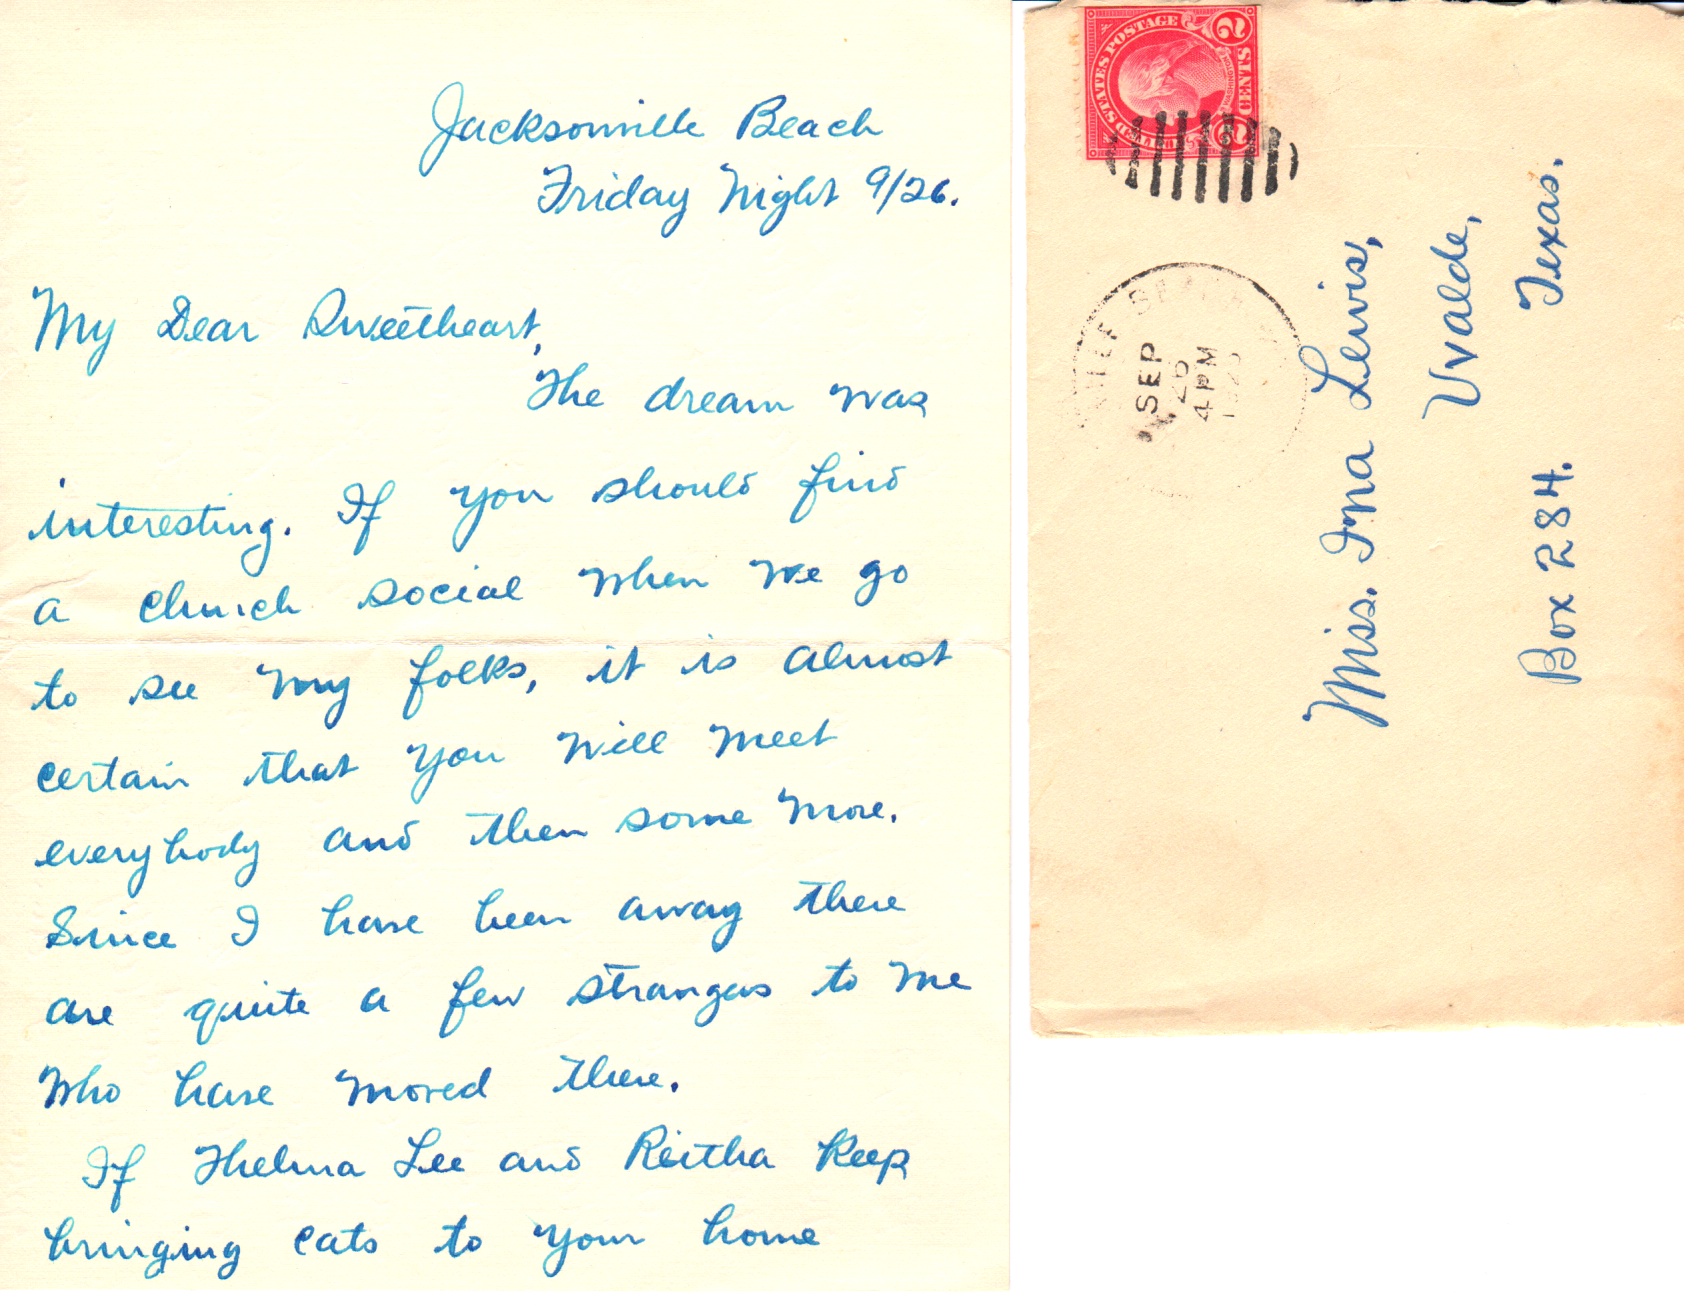 Jacksonville Beach
Friday Night 9/26.
My Dear Sweetheart,
The dream was
interesting. If you should find
a church social when we go
to see my folks, it is almost
certain that you will meet
everybody and then some more.
Since I have been away there
are quite a few strangers to me
who have moved there.
If Thelma Lee and Reitha keep
bringing cats to your home
UNITED STATES POSTAGE
WASHINGTON
2 CENTS 2
SEP
26
4 PM
Miss. Ina Lewis,
Uvalde,
Box 284. Texas.